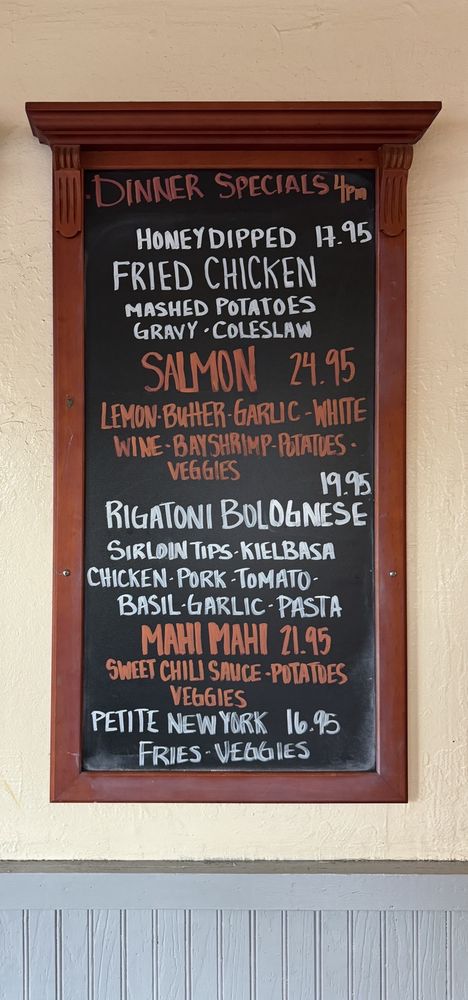 DINNER SPECIALS 4PM
HONEY DIPPED 17.95
FRIED CHICKEN
MASHED POTATOES
GRAVY - COLESLAW
SALMON 24.95
LEMON-BUTTER-GARLIC-WHITE
WINE-BAY SHRIMP-POTATOES-
VEGGIES
19.95
RIGATONI BOLOGNESE
SIRLOIN TIPS-KIELBASA
CHICKEN-PORK-TOMATO-
BASIL-GARLIC-PASTA
MAHI MAHI 21.95
SWEET CHILI SAUCE-POTATOES
VEGGIES
PETITE NEW YORK 16.95
FRIES-VEGGIES